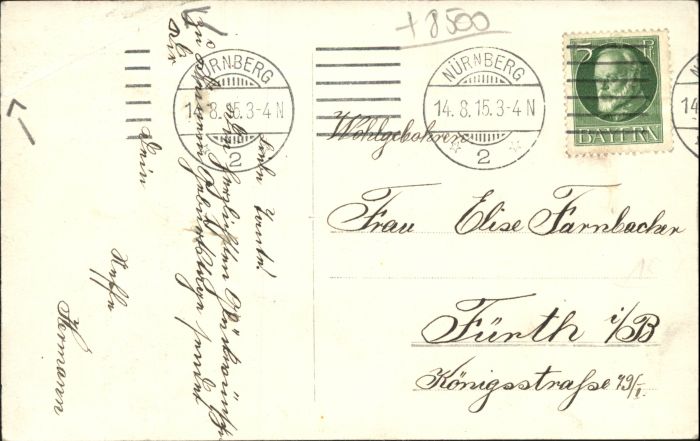 + 8500
NÜRNBERG
14.8.15.3-4N
2
NÜRNBERG
14.8.15.3-4N
2
5 P
BAYERN
14
Wohlgebohren
Frau Elise Farnbacher
Fürth i/B
Königsstraße 79/I.
Liebe Tante!
Die herzlichsten Glückwünsche
zu Deinem Geburtstage sendet
Dir
Dein
Neffe
Hermann